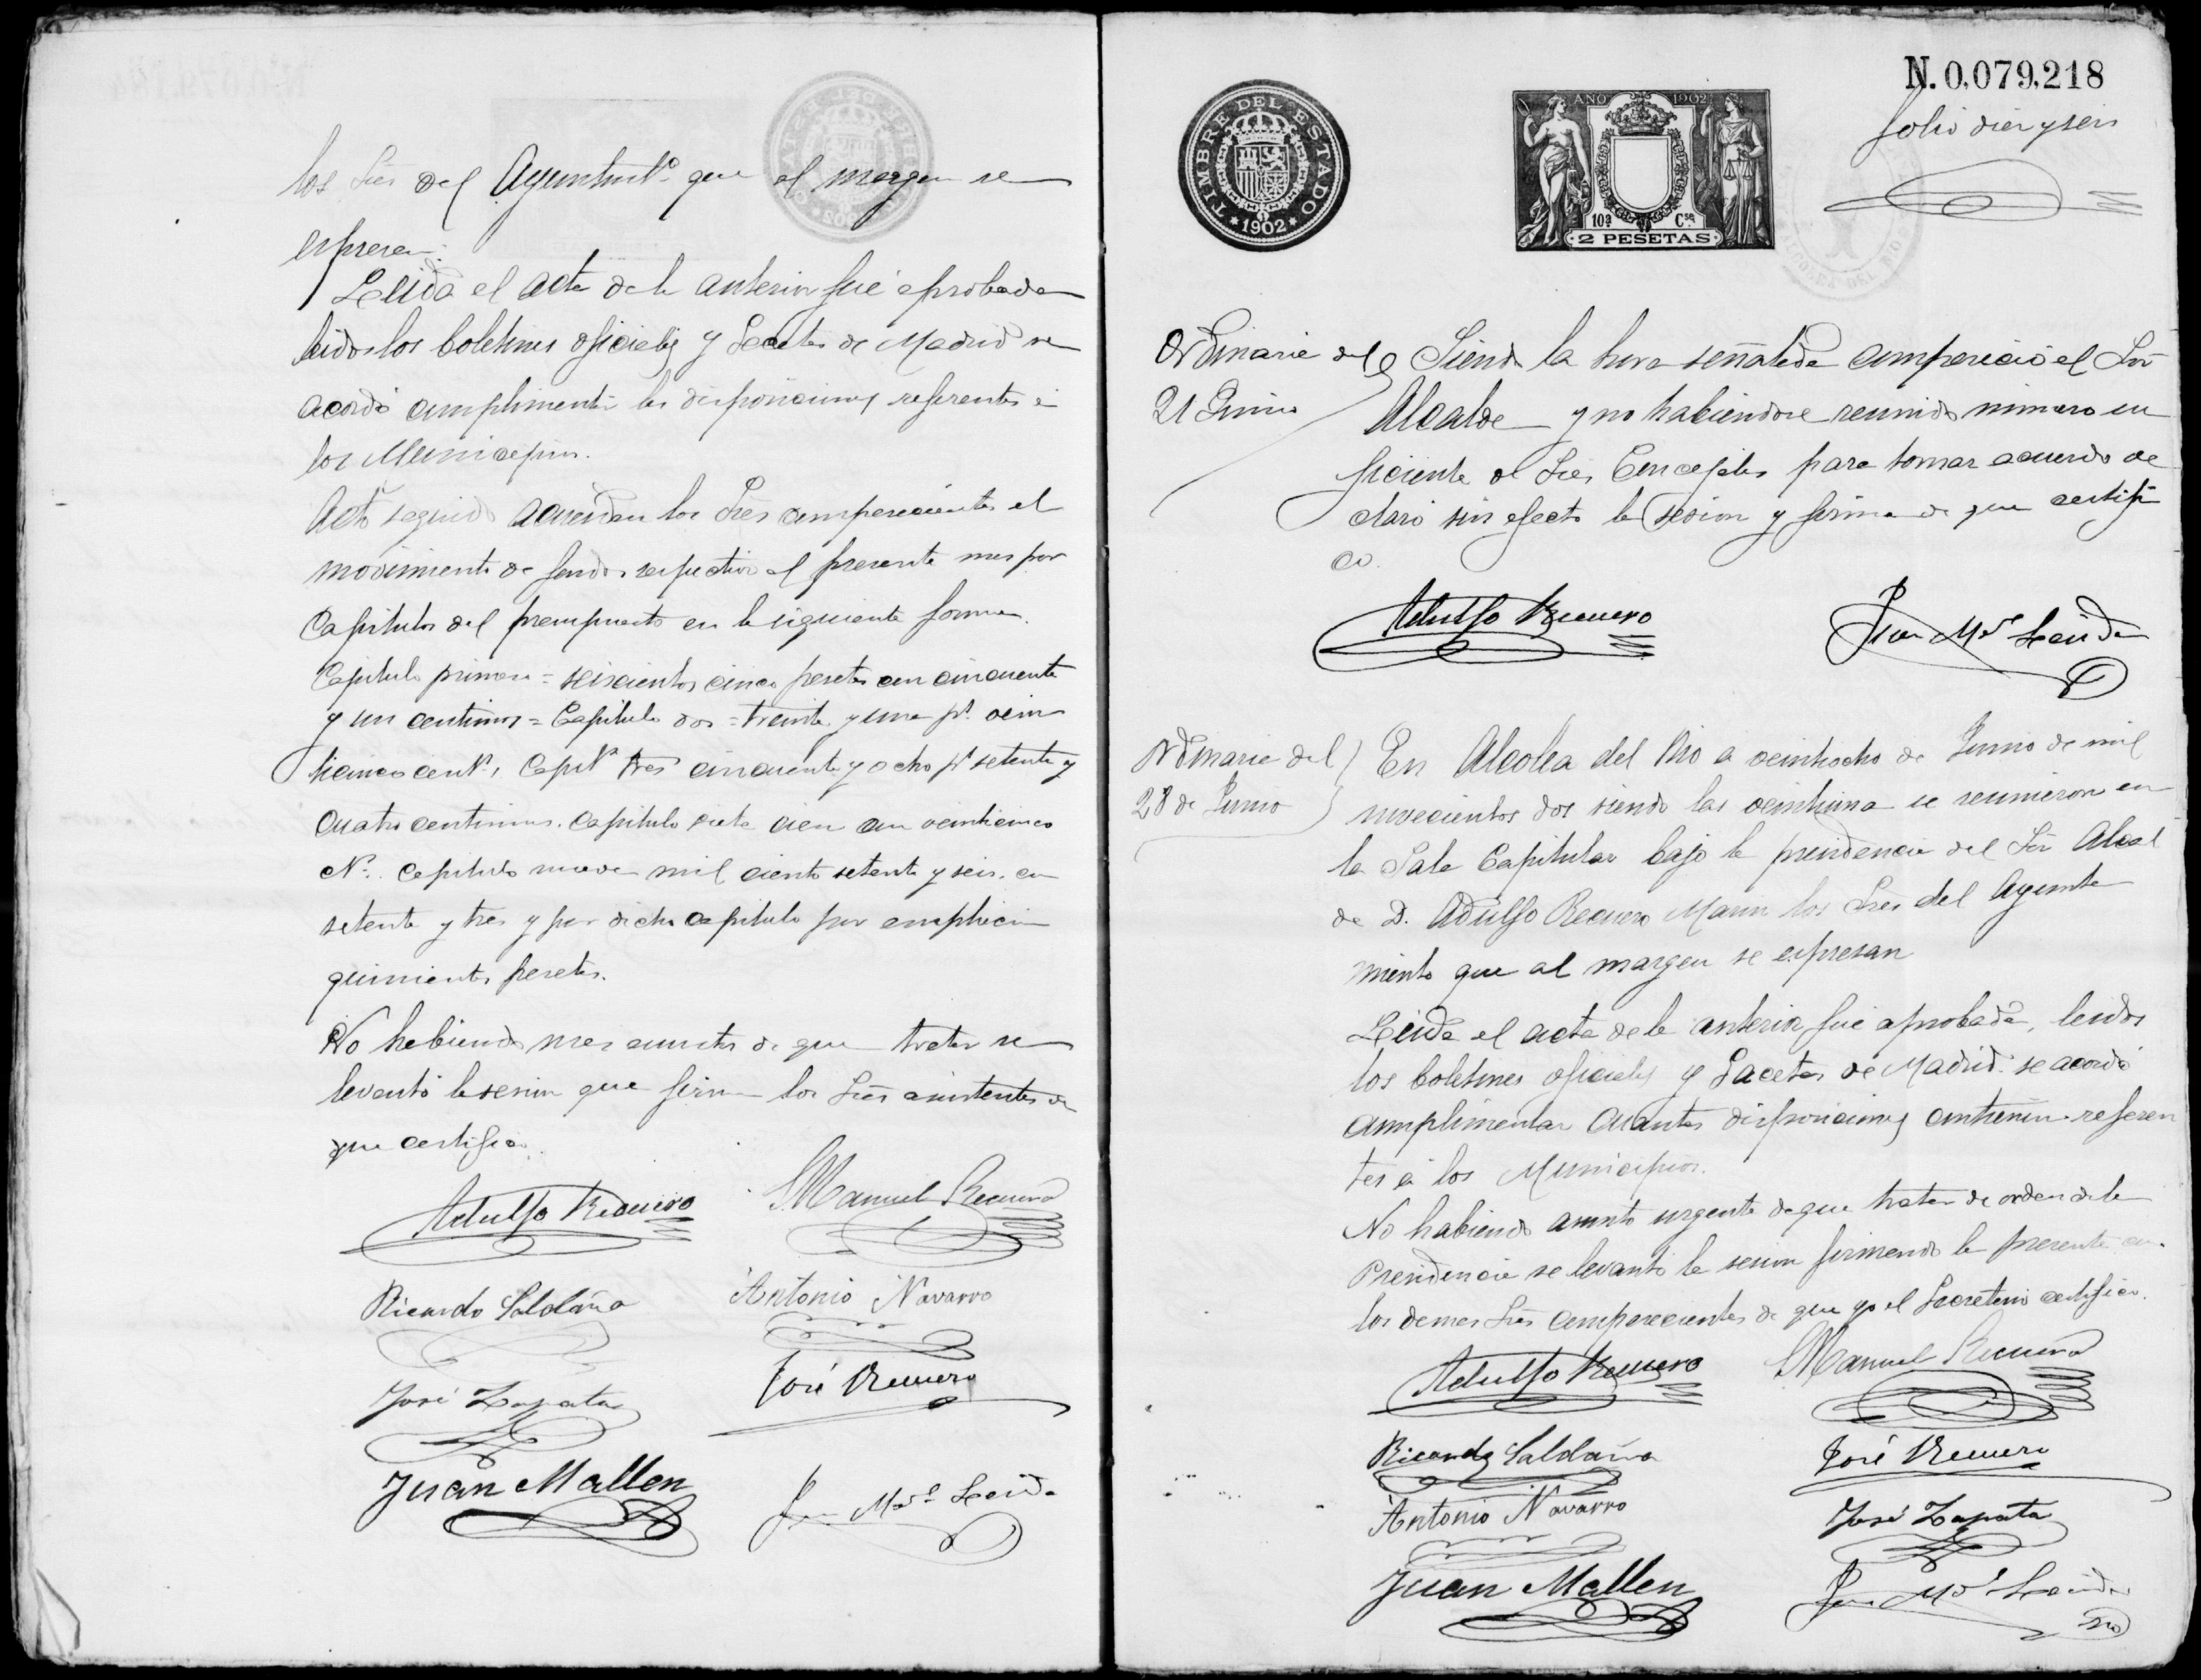 los Sres del Ayuntmto que al margen se
espresan.
Leida el acta de la anterior fué aprobada
leidos los boletines oficiales y Gacetas de Madrid se
acordó cumplimentar las disposiciones referentes á
los Municipios.
Acto seguido acuerdan los Sres comparecientes el
movimiento de fondos respectivo al presente mes por
Capitulos del presupuesto en la siguiente forma.
Capitulo primero = seiscientos cinco pesetas con cincuenta
y un centimos = Capitulo dos = treinta y una pts. vein
ticinco cents, Capito tres cincuenta y ocho pts setenta y
cuatro centimos. Capitulo siete cien con veinticinco
Capitulo nueve mil ciento setenta y seis con
setenta y tres y por dicho capitulo por ampliacion
quinientas pesetas.
No habiendo mas asuntos de que tratar se
levantó la sesion que firman los Sres asistentes de
que certifico.
Adulfo Recuero
Manuel Recuero
Ricardo Saldaña
Antonio Navarro
José Zapata
José Recuero
Juan Mallen
Juan Ma Leida
N. 0,079,218
folio diez y seis
TIMBRE DEL ESTADO
1902
AÑO 1902
10ª Cse
2 PESETAS
Ordinaria del
21 Junio
Siendo la hora señalada compareció el Sor
Alcalde y no habiendose reunido numero su
ficiente de Sres Concejales para tomar acuerdo de
claró sin efecto la sesion y firma de que certifi
co.
Adulfo Recuero
Juan Ma Leida
Ordinaria del
28 de Junio
En Alcolea del Rio a veintiocho de Junio de mil
novecientos dos siendo las veintiuna se reunieron en
la Sala Capitular bajo la presidencia del Sor Alcal
de D. Adulfo Recuero Marin los Sres del Ayunta
miento que al margen se espresan
Leida el acta de la anterior fué aprobada, leidos
los boletines oficiales y Gacetas de Madrid se acordó
cumplimentar cuantas disposiciones contienen referen
tes á los Municipios.
No habiendo asunto urgente de que tratar de orden de la
Presidencia se levantó la sesion firmando la presente con
los demas Sres comparecientes de que yo el Secretario certifico.
Adulfo Recuero
Manuel Recuero
Ricardo Saldaña
José Recuero
Antonio Navarro
José Zapata
Juan Mallen
Juan Ma Leida